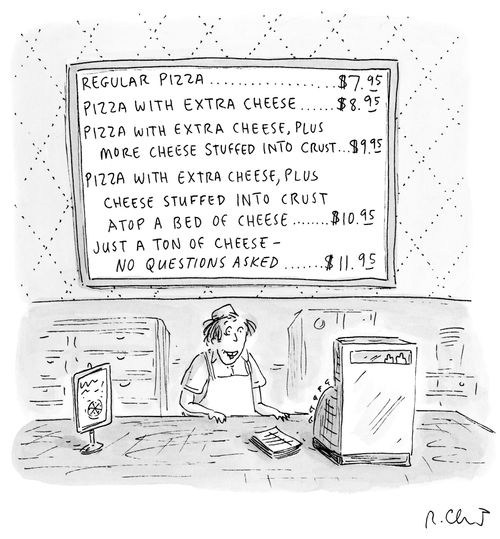 REGULAR PIZZA .................. $7.95
PIZZA WITH EXTRA CHEESE ...... $8.95
PIZZA WITH EXTRA CHEESE, PLUS
MORE CHEESE STUFFED INTO CRUST... $9.95
PIZZA WITH EXTRA CHEESE, PLUS
CHEESE STUFFED INTO CRUST
ATOP A BED OF CHEESE ....... $10.95
JUST A TON OF CHEESE –
NO QUESTIONS ASKED ....... $11.95